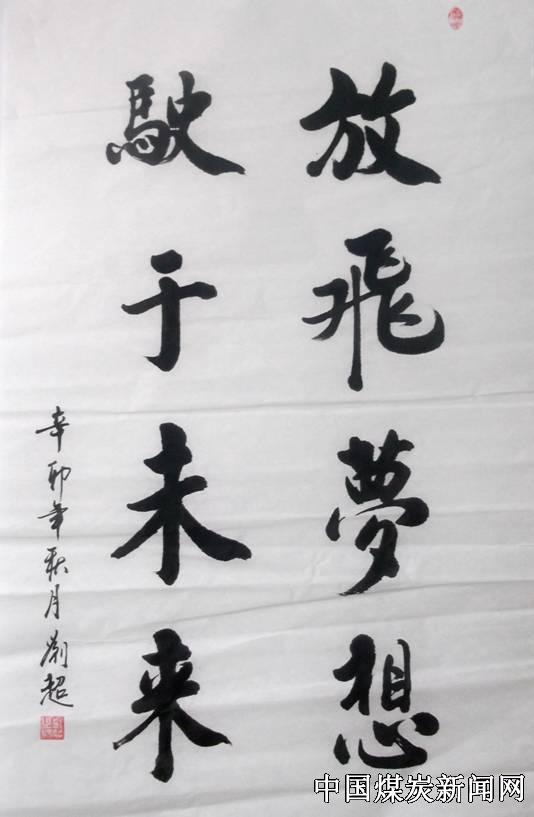 放飛夢想
駛于未来
辛卯年秋月劉超
中国煤炭新闻网